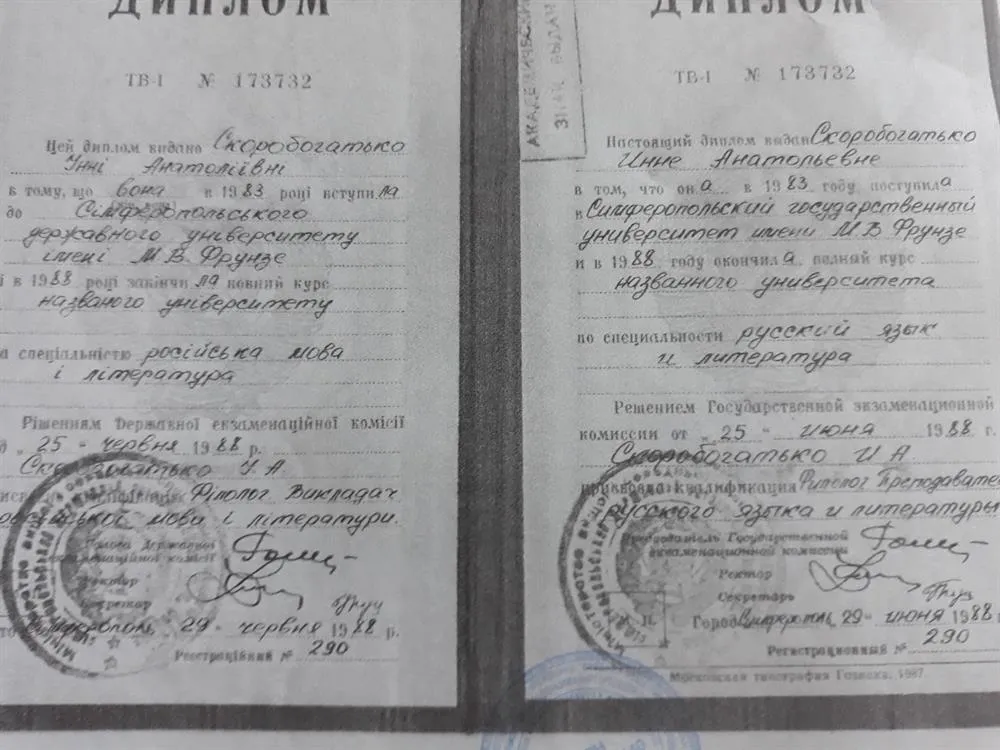 ДИПЛОМ
ТВ-I № 173732
Цей диплом видано Скоробогатько
Інні Анатоліївні
в тому, що вона в 1983 році вступила
до Сімферопольського
державного університету
імені М.В. Фрунзе
і в 1988 році закінчила повний курс
названого університету
спеціальністю російська мова
і література
Рішенням Державної екзаменаційної комісії
"25" червня 1988 р.
Скоробогатько І. А.
Філолог. Викладач
російської мови і літератури.
Голова Державної
екзаменаційної комісії
Ректор
Секретар
Сімферополь, 29 червня 1988 р.
Реєстраційний № 290
ДИПЛОМ
АКАДЕМИЧЕСКИЙ
ЗНАК ВЫДАН
ТВ-I № 173732
Настоящий диплом выдан Скоробогатько
Инне Анатольевне
в том, что она в 1983 году поступила
в Симферопольский государственный
университет имени М.В. Фрунзе
и в 1988 году окончила полный курс
названного университета
по специальности русский язык
и литература
Решением Государственной экзаменационной
комиссии от "25" июня 1988 г.
Скоробогатько И. А.
присвоена квалификация Филолог Преподаватель
русского языка и литературы
Председатель Государственной
экзаменационной комиссии
Ректор
Секретарь
Город Симферополь, 29 июня 1988
Регистрационный № 290
Московская типография Гознака. 1987.